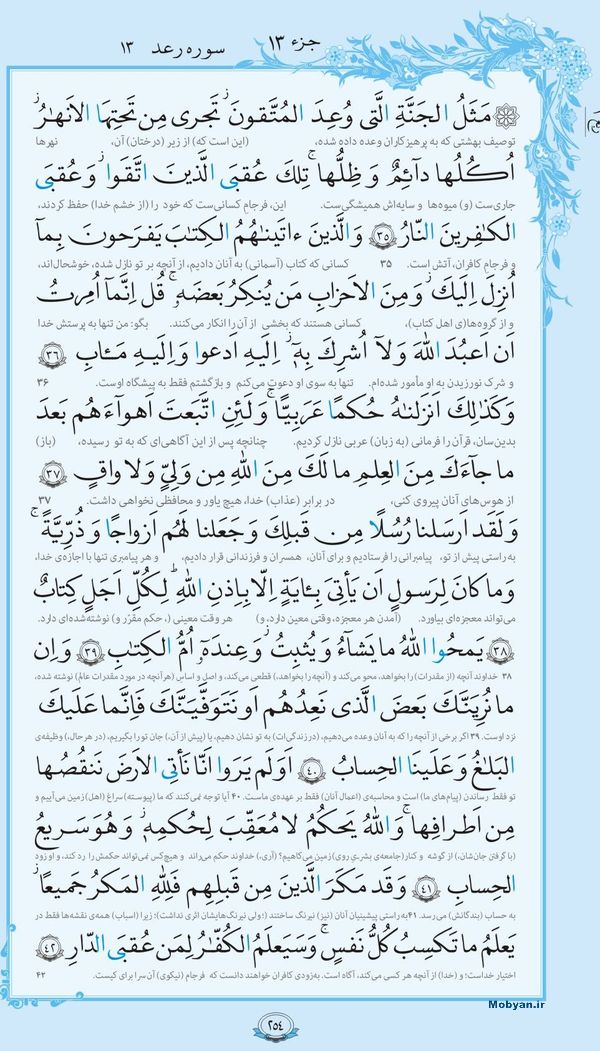 جزء ۱۳ سوره رعد ۱۳
مَثَلُ الجَنَّةِ الَّتی وُعِدَ المُتَّقونَ ۖ تَجری مِن تَحتِهَا الاَنهٰرُ ۖ
توصیف بهشتی که به پرهیزکاران وعده داده شده، (این است که) از زیر (درختان) آن، نهرها
اُکُلُها دآئِمٌ وَ ظِلُّها ۚ تِلکَ عُقبَی الَّذینَ اتَّقَوا ۖ وَ عُقبَی
جاری‌ست (و) میوه‌ها و سایه‌اش همیشگی‌ست. این، فرجام کسانی‌ست که خود را (از خشم خدا) حفظ کردند،
الکٰفِرینَ النّارُ ۳۵ وَ الَّذینَ ءاتَینٰهُمُ الکِتٰبَ یَفرَحونَ بِمآ
و فرجام کافران، آتش است. ۳۵ کسانی که کتاب (آسمانی) به آنان دادیم، از آنچه بر تو نازل شده، خوشحال‌اند،
اُنزِلَ اِلَیکَ ۖ وَ مِنَ الاَحزابِ مَن یُنکِرُ بَعضَه ۚ قُل اِنَّمآ اُمِرتُ
و از گروه‌ها(ی اهل کتاب)، کسانی هستند که بخشی از آن را انکار می‌کنند. بگو: من تنها به پرستش خدا
اَن اَعبُدَ اللهَ وَ لآ اُشرِکَ بِه ۚ اِلَیهِ اَدعوا وَ اِلَیهِ مَـٔابِ ۳۶
و شرک نورزیدن به او مأمور شده‌ام. تنها به سوی او دعوت می‌کنم و بازگشتم فقط به پیشگاه اوست. ۳۶
وَ کَذٰلِکَ اَنزَلنٰهُ حُکمًا عَرَبِیًّا ۚ وَ لَئِنِ اتَّبَعتَ اَهوآءَهُم بَعدَ
بدین‌سان، قرآن را فرمانی (به زبان) عربی نازل کردیم. چنانچه پس از این آگاهی‌ای که به تو رسیده، (باز)
ما جآءَکَ مِنَ العِلمِ ما لَکَ مِنَ اللهِ مِن وَلِیٍّ وَ لا واقٍ ۳۷
از هوس‌های آنان پیروی کنی، در برابر (عذاب) خدا، هیچ یاور و محافظی نخواهی داشت. ۳۷
وَ لَقَد اَرسَلنا رُسُلًا مِن قَبلِکَ وَ جَعَلنا لَهُم اَزواجًا وَ ذُرِّیَّةً ۚ
به راستی پیش از تو، پیامبرانی را فرستادیم و برای آنان، همسران و فرزندانی قرار دادیم، و هر پیامبری تنها با اجازه‌ی خدا،
وَ ما کانَ لِرَسولٍ اَن یَأتیَ بِـٔایَةٍ اِلّا بِاِذنِ اللهِ ۗ لِکُلِّ اَجَلٍ کِتابٌ
می‌تواند معجزه‌ای بیاورد. (آمدن هر معجزه، وقتی معین دارد، و) هر وقت معینی (، حکم مقرّر و) نوشته‌شده‌ای دارد.
۳۸ یَمحُوا اللهُ ما یَشآءُ وَ یُثبِتُ ۖ وَ عِندَه اُمُّ الکِتٰبِ ۳۹ وَ اِن
۳۸ خداوند آنچه (از مقدرات) را بخواهد، محو می‌کند و (آنچه را بخواهد،) قطعی می‌کند، و اصل و اساس (هر آنچه در مورد مقدرات عالم) نوشته شده،
ما نُرِیَنَّکَ بَعضَ الَّذی نَعِدُهُم اَو نَتَوَفَّیَنَّکَ فَاِنَّما عَلَیکَ
نزد اوست. ۳۹ اگر برخی از آنچه را که به آنان وعده می‌دهیم، (در زندگی‌ات) به تو نشان دهیم، یا (پیش از آن،) جان تو را بگیریم، (در هر حال،) وظیفه‌ی
البَلٰغُ وَ عَلَینَا الحِسابُ ۴۰ اَوَلَم یَرَوا اَنّا نَأتِی الاَرضَ نَنقُصُها
تو فقط رساندن (پیام‌های ما) است و محاسبه‌ی (اعمال آنان) فقط بر عهده‌ی ماست. ۴۰ آیا توجه نمی‌کنند که ما (پیوسته) سراغ (اهل) زمین می‌آییم و
مِن اَطرافِها ۚ وَ اللهُ یَحکُمُ لا مُعَقِّبَ لِحُکمِه ۚ وَ هُوَ سَریعُ
(با گرفتن جان‌شان،) از گوشه و کنار (جامعه‌ی بشریِ روی) زمین می‌کاهیم؟ (آری،) خداوند حکم می‌راند و هیچ‌کس نمی‌تواند حکمش را رد کند، و او زود
الحِسابِ ۴۱ وَ قَد مَکَرَ الَّذینَ مِن قَبلِهِم فَلِلّٰهِ المَکرُ جَمیعًا ۖ
به حساب (بندگانش) می‌رسد. ۴۱ به راستی پیشینیان آنان (نیز) نیرنگ ساختند (؛ ولی نیرنگ‌هایشان اثری نداشت)؛ زیرا (اسباب) همه‌ی نقشه‌ها فقط در
یَعلَمُ ما تَکسِبُ کُلُّ نَفسٍ ۗ وَ سَیَعلَمُ الکُفّٰرُ لِمَن عُقبَی الدّارِ ۴۲
اختیار خداست؛ و (خدا) از آنچه هر کسی می‌کند، آگاه است. به‌زودی کافران خواهند دانست که فرجام (نیکوی) آن سرا برای کیست. ۴۲
Mobyan.ir
۲۵۴